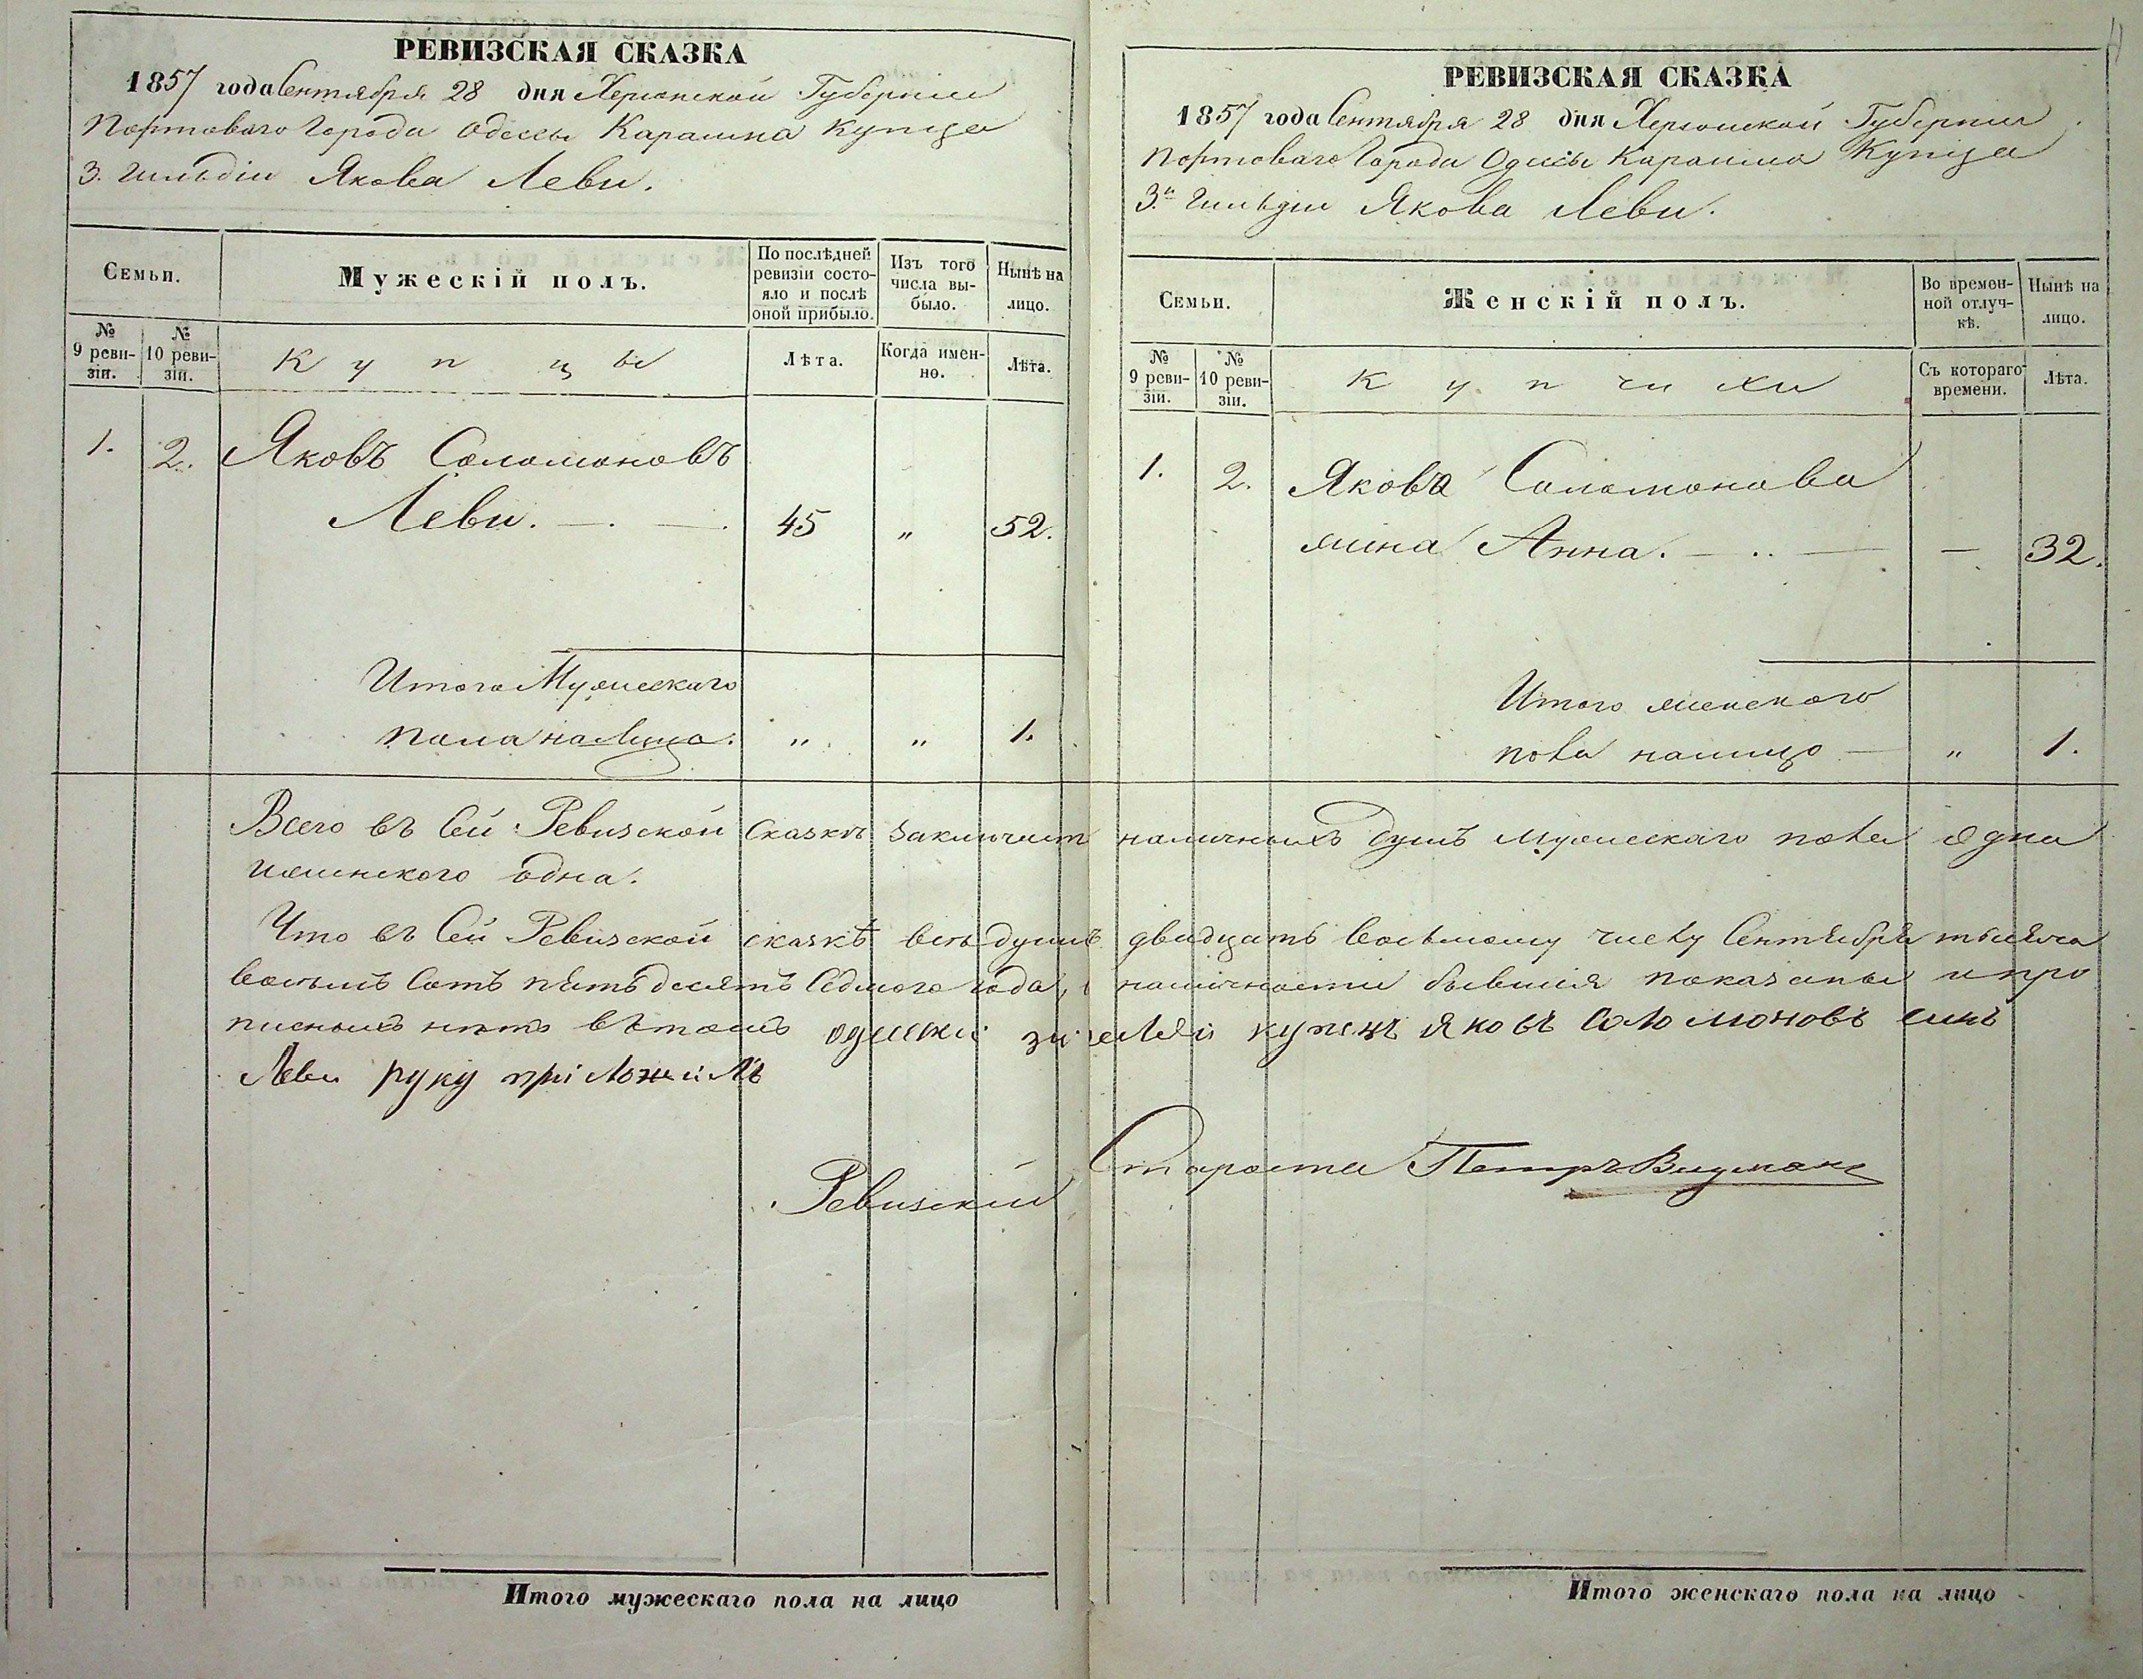 РЕВИЗСКАЯ СКАЗКА
1857 года Сентября 28 дня Херсонской Губернии
Портоваго Города Одессы Караима Купца
3. Гильдіи Якова Леви.
Семьи.
Мужескій полъ.
По послѣдней ревизіи состо-
яло и послѣ оной прибыло.
Изъ того числа вы-
было.
Нынѣ на лицо.
№ 9 реви-
зіи.
№ 10 реви-
зіи.
Купцы
Лѣта.
Когда имен-
но.
Лѣта.
1. 2. Яковъ Соломоновъ
Леви. — . — . 45 „ 52.
Итого Мужескаго
пола на Лицо. „ „ 1.
РЕВИЗСКАЯ СКАЗКА
1857 года Сентября 28 дня Херсонской Губерніи
Портоваго Города Одессы Караима Купца
3й Гильдіи Якова Леви.
Семьи.
Женскій полъ.
Во времен-
ной отлуч-
кѣ.
Нынѣ на лицо.
№ 9 реви-
зіи.
№ 10 реви-
зіи.
Купчихи
Съ котораго времени.
Лѣта.
1. 2. Якова Соломонова
жена Анна. — .. — — 32.
Итого женского
пола налицо — „ 1.
Всего въ Сей Ревизской Сказкѣ заключает наличныхъ душъ мужескаго пола одна
и женского одна.
Что въ Сей Ревизской сказкѣ всѣ души двадцать восьмому числу Сентября тысяча
восемь сотъ пятьдесятъ седмого года, наличности бывшія показаны и про
писныхъ нѣтъ въ томъ купецъ Яковъ Соломоновъ синъ
Леви руку приложилъ
Ревизскій Староста Петръ
Итого мужескаго пола на лицо
Итого женскаго пола на лицо